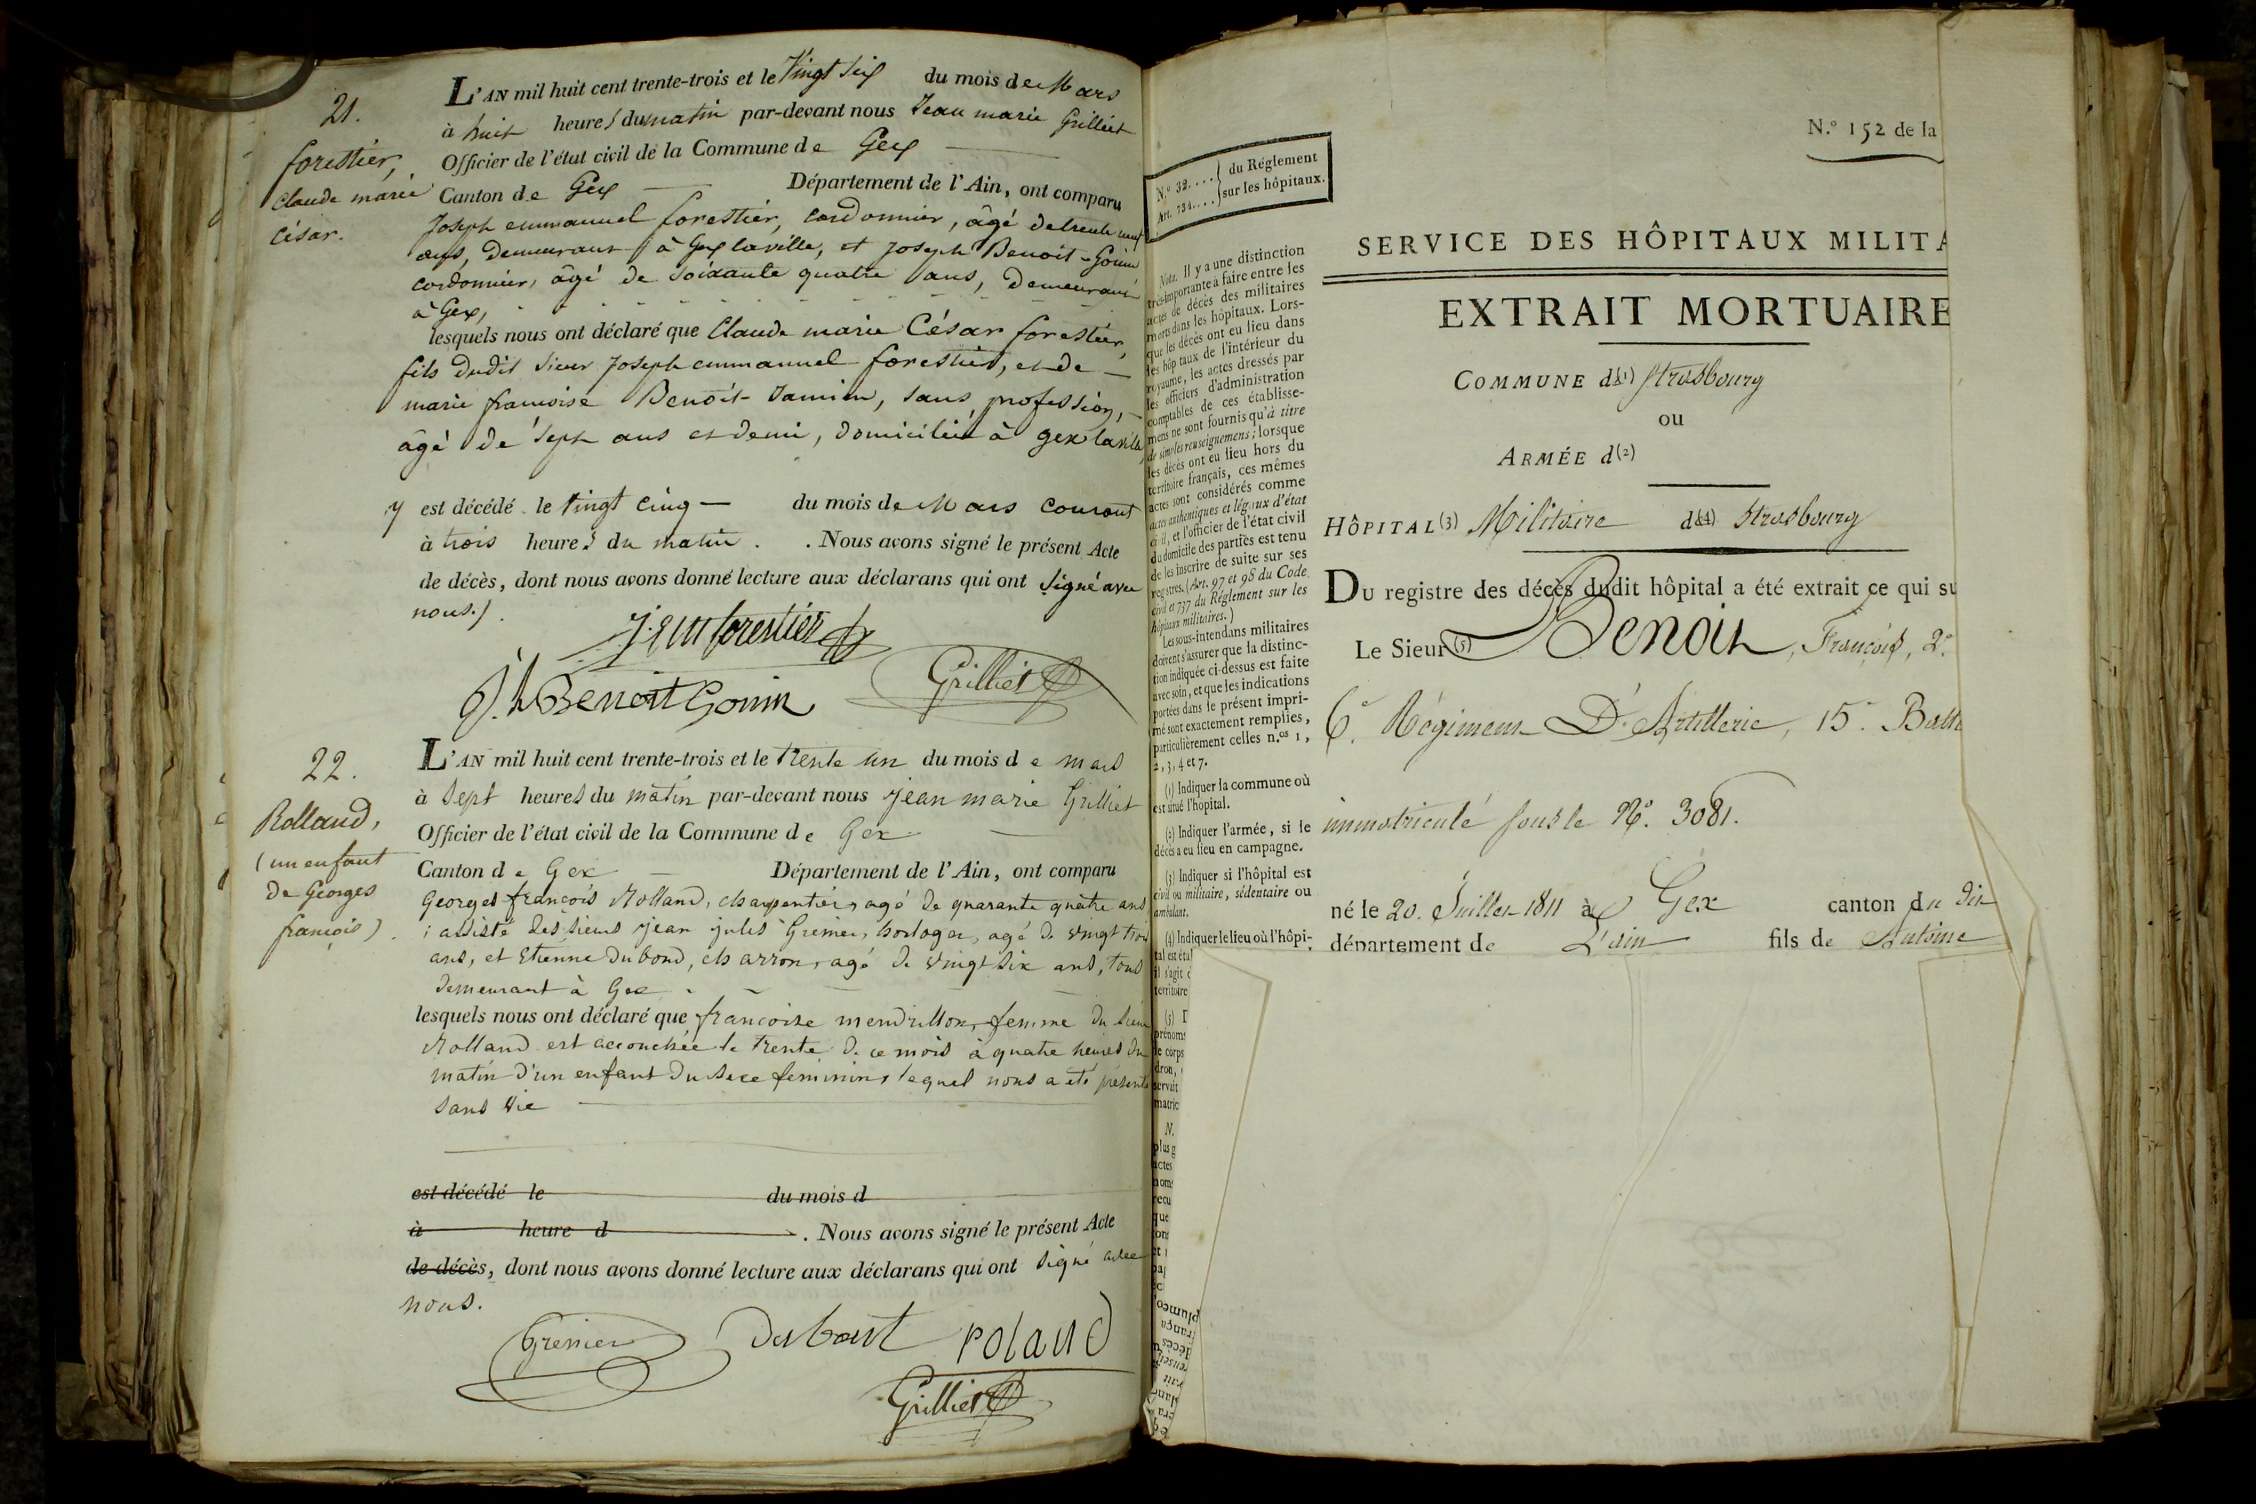 21.
forestier,
claude marie
César.
L'AN mil huit cent trente-trois et le Vingt Six du mois de Mars
à huit heures du matin par-devant nous Jean marie Grilliet
Officier de l'état civil de la Commune de Gex
Canton de Gex Département de l'Ain, ont comparu
Joseph emmanuel forestier, cordonnier, âgé de trente neuf
ans, demeurant à Gex la ville, et Joseph Benoit-Gonin
cordonnier, âgé de soixante quatre ans, demeurant
à Gex,
lesquels nous ont déclaré que Claude marie César forestier,
fils dudit sieur Joseph emmanuel forestier, et de
marie francoise Benoit-Jamin, sans profession,
âgé de sept ans et demi, domicilié à gex la ville
y est décédé le Vingt cinq du mois de Mars courant
à trois heures du matin. Nous avons signé le présent Acte
de décès, dont nous avons donné lecture aux déclarans qui ont signé avec
nous.
J. E M forestier
Jh Benoit Gonin
Grilliet
22.
Rolland,
(un enfant
de Georges
françois).
L'AN mil huit cent trente-trois et le trente un du mois de mars
à sept heures du matin par-devant nous jean marie Grilliet
Officier de l'état civil de la Commune de Gex
Canton de Gex Département de l'Ain, ont comparu
Georges francois Rolland, charpentier, agé de quarante quatre ans
assisté des sieurs jean jules Grenier, horloger, agé de vingt trois
ans, et Etienne Dubond, charron, agé de vingt six ans, tous
demeurant à Gex
lesquels nous ont déclaré que francoise mendrillon, femme du sieur
Rolland est accouchée le trente de ce mois à quatre heures du
matin d'un enfant du sexe feminin, lequel nous a été présenté
sans vie
est décédé le du mois d
à heure d . Nous avons signé le présent Acte
de décès, dont nous avons donné lecture aux déclarans qui ont signé avec
nous.
Grenier Duboust roland
Grilliet
N.º 32....
Art. 734....
du Réglement
sur les hôpitaux.
Nota. Il y a une distinction
très-importante à faire entre les
actes de décès des militaires
morts dans les hôpitaux. Lors-
que les décès ont eu lieu dans
les hôpitaux de l'intérieur du
royaume, les actes dressés par
les officiers d'administration
comptables de ces établisse-
mens ne sont fournis qu'à titre
de simples renseignemens; lorsque
les décès ont eu lieu hors du
territoire français, ces mêmes
actes sont considérés comme
actes authentiques et légaux d'état
civil, et l'officier de l'état civil
du domicile des parties est tenu
de les inscrire de suite sur ses
registres. (Art. 97 et 98 du Code
civil et 737 du Réglement sur les
hôpitaux militaires.)
Les sous-intendans militaires
doivent s'assurer que la distinc-
tion indiquée ci-dessus est faite
avec soin, et que les indications
portées dans le présent impri-
mé sont exactement remplies,
particulièrement celles n.os 1,
2, 3, 4 et 7.
(1) Indiquer la commune où
est situé l'hôpital.
(2) Indiquer l'armée, si le
décès a eu lieu en campagne.
(3) Indiquer si l'hôpital est
civil ou militaire, sédentaire ou
ambulant.
(4) Indiquer le lieu où l'hôpi-
tal est éta
il s'agit
territoire
(5)
prénoms
de corps
N.º 152 de la
SERVICE DES HÔPITAUX MILITA
EXTRAIT MORTUAIRE
COMMUNE d(1) Strasbourg
ou
ARMÉE d(2)
HÔPITAL(3) Militaire d(4) Strasbourg
DU registre des décès dudit hôpital a été extrait ce qui su
Le Sieur(5) Benoit, François, 2.
6.e Régiment D'Artillerie, 15.e Batte
immatriculé sous le Nº. 3081.
né le 20. Juillet 1811 à Gex canton du dit
département de L'ain fils de Antoine